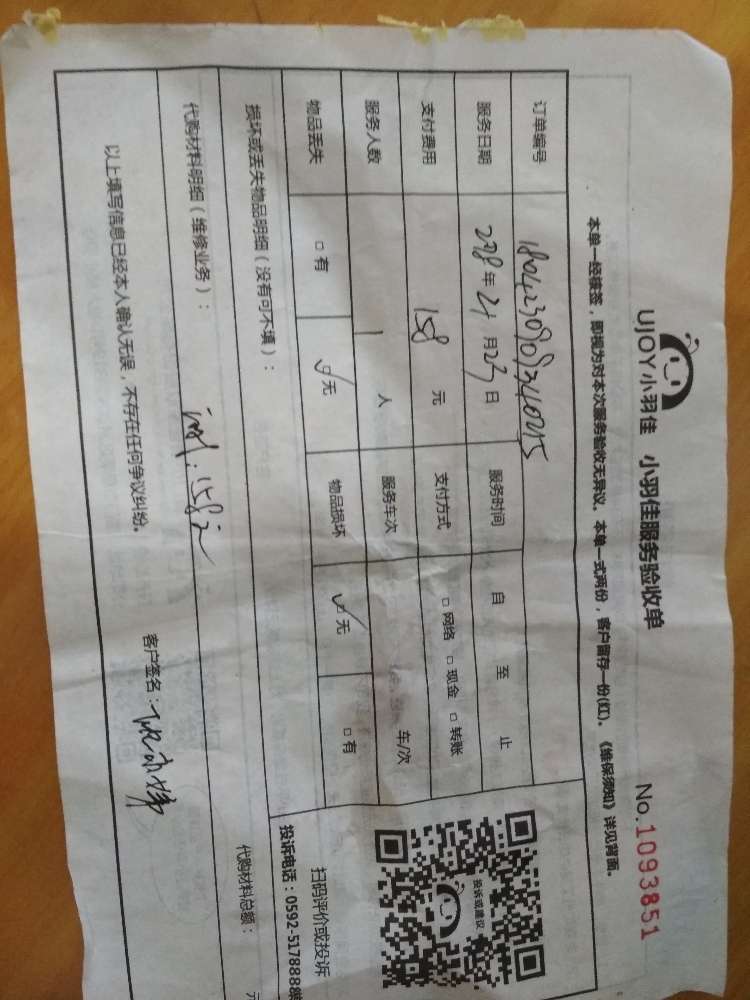 UJOY小羽佳 小羽佳服务验收单 No.1093851
本单一经接签，即视为对本次服务验收无异议。本单一式两份，客户留存一份(红)。《维保须知》详见背面。
订单编号
服务日期 2018年 月23日 服务时间 自 至 止
支付费用 158 元 支付方式 □网络 □现金 □转账
服务人数 1 人 服务车次 车/次
物品丢失 □有 □无 物品损坏 □无 □有
投诉或建议
扫码评价或投诉
投诉电话：0592-5178888
损坏或丢失物品明细（没有可不填）：
代购材料明细（维修业务）： 代购材料总额： 元
以上填写信息已经本人确认无误，不存在任何争议纠纷。 客户签名：